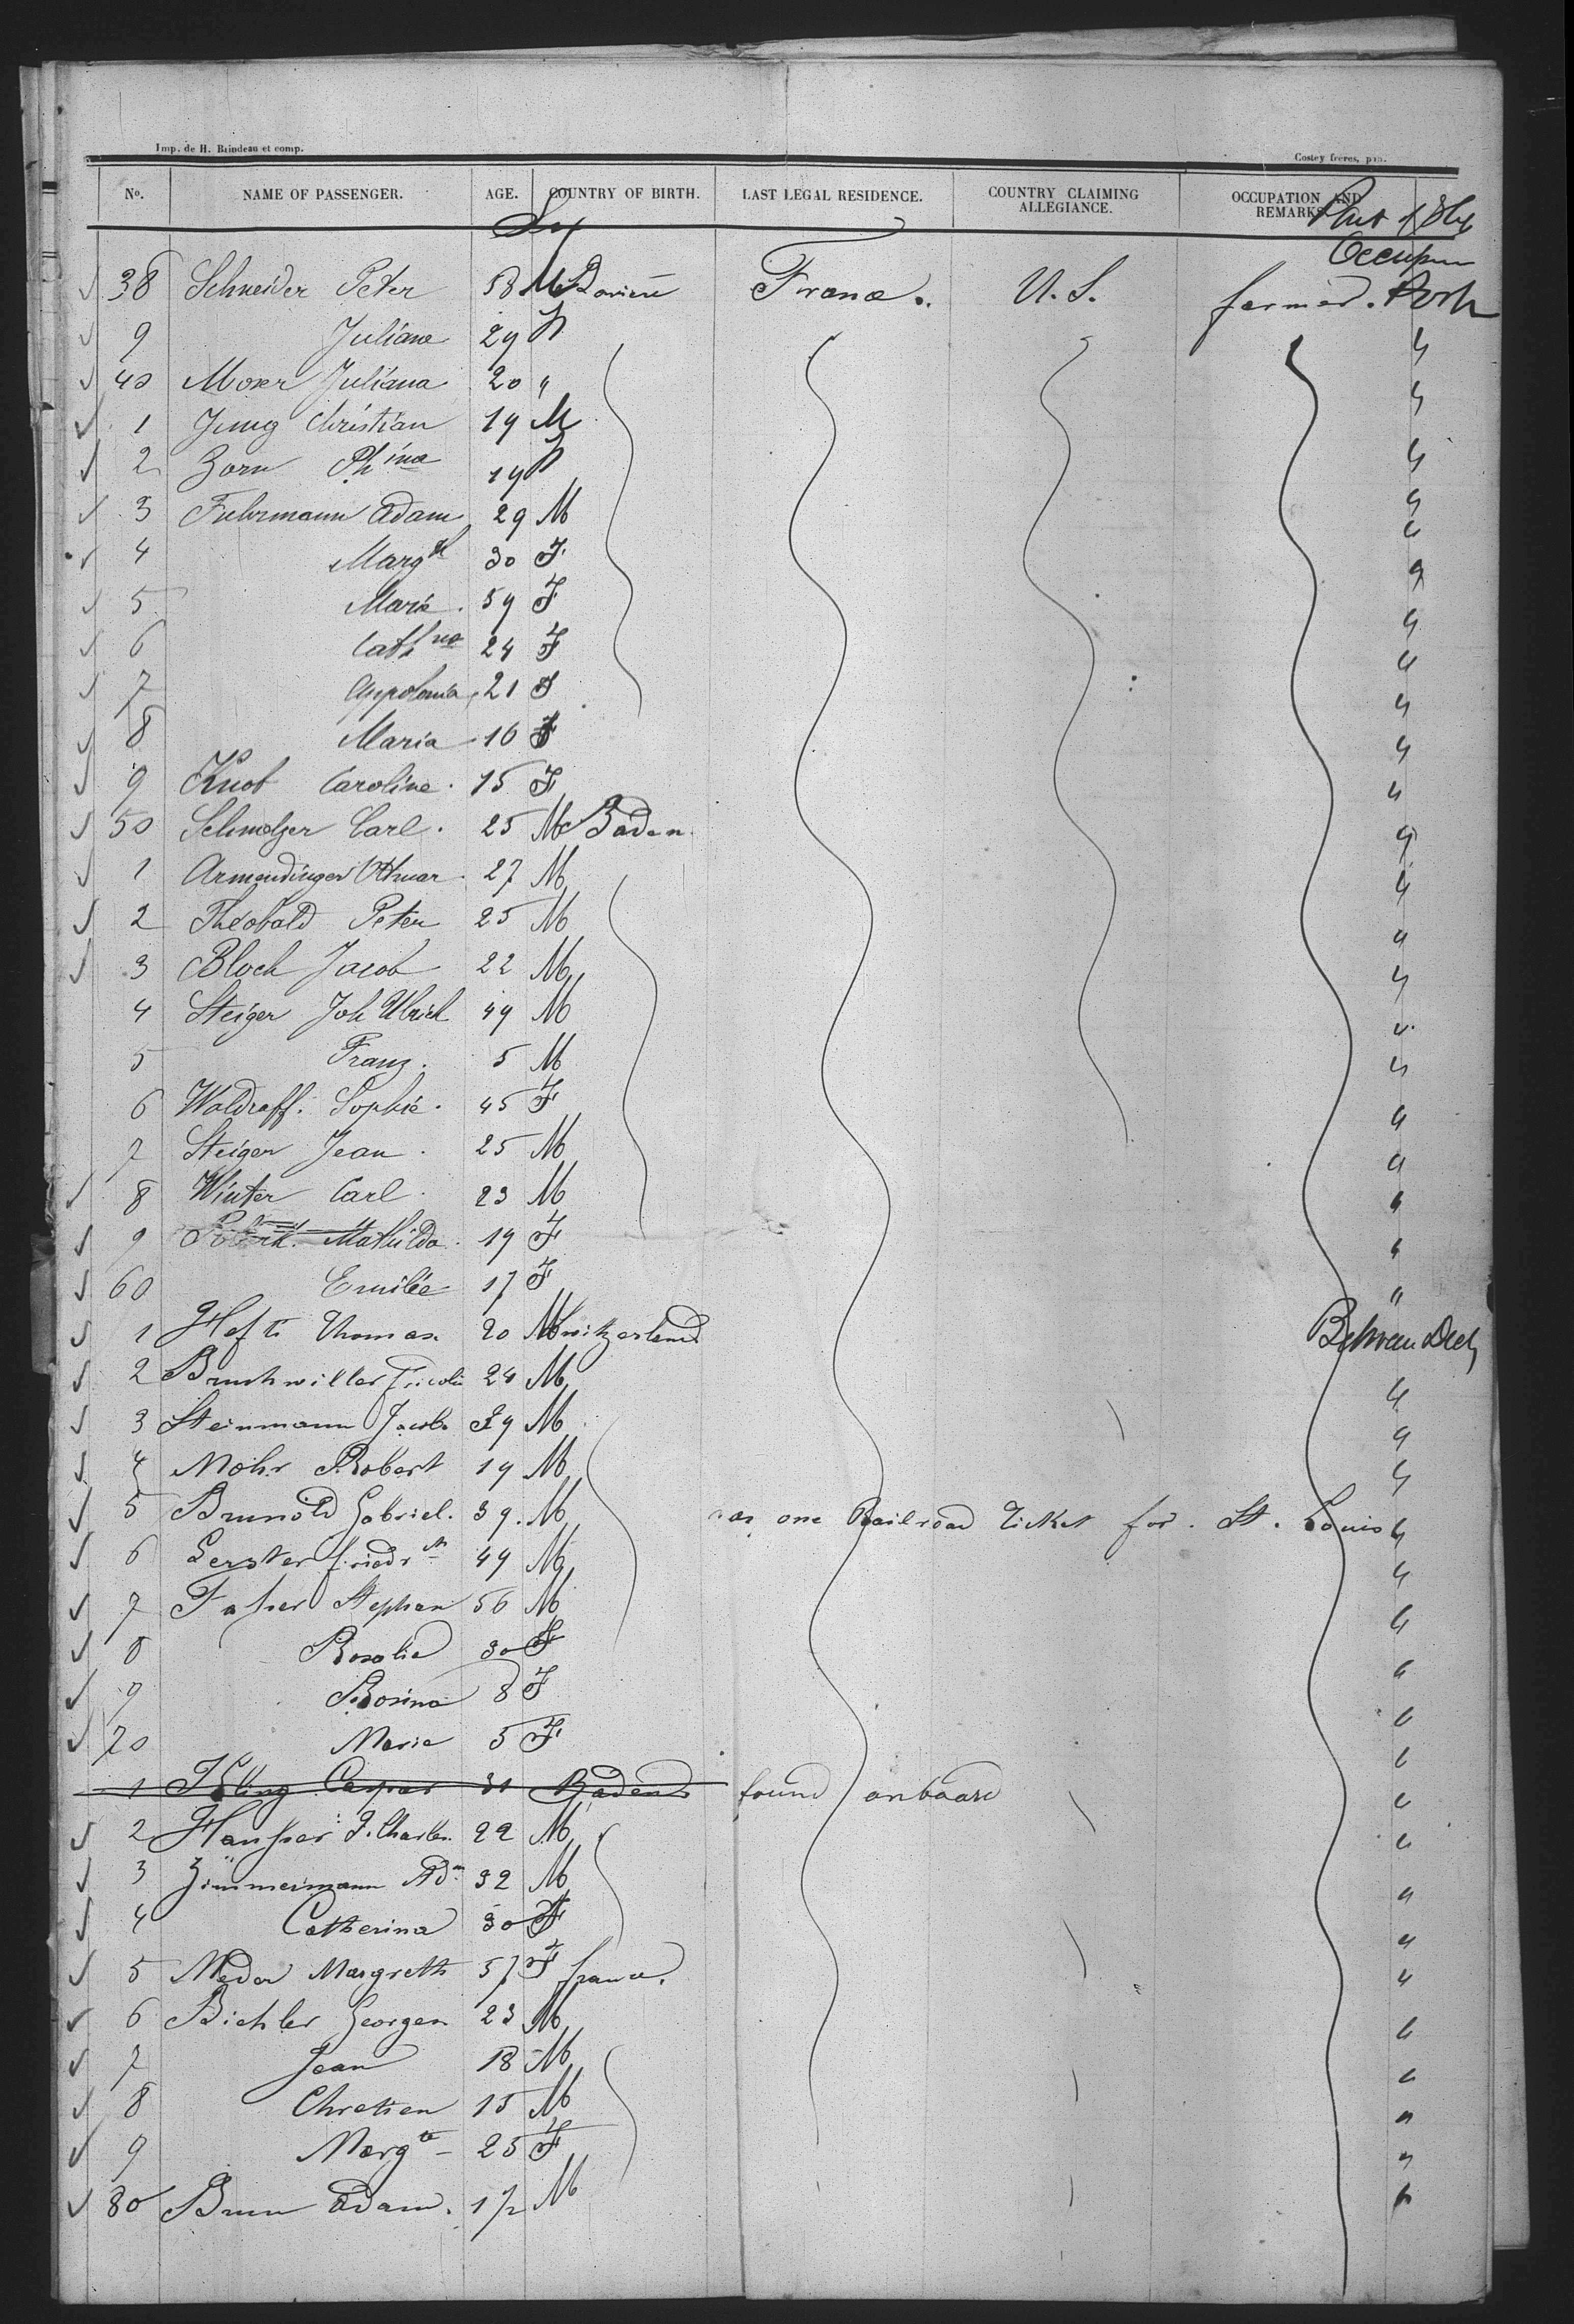 Imp. de H. Brindeau et comp.
Costey frères, pap.
No. NAME OF PASSENGER. AGE. COUNTRY OF BIRTH. LAST LEGAL RESIDENCE. COUNTRY CLAIMING ALLEGIANCE. OCCUPATION AND REMARKS
Sex Part of Ship
Occupun
38 Schneider Peter 58 M Bavière France. U. S. farmer.
9 Juliane 29 F "
40 Moser Juliana 20 " "
1 Jung Christian 19 M "
2 Zorn Ph ina 19 F "
3 Fuhrmann Adam 29 M "
4 Marg th 30 F "
5 Marie. 59 F "
6 Cath na 24 F "
7 Appolonia 21 F "
8 Maria 16 F "
9 Knob Caroline. 15 F "
50 Schmelzer Carl. 25 M Baden. "
1 Armendinger Othmar. 27 M "
2 Théobald Peter 25 M "
3 Bloch Jacob 22 M "
4 Steiger Joh Ulrich 49 M "
5 Franz. 5 M "
6 Waldraff. Sophie. 45 F "
7 Steiger Jean. 25 M "
8 Winter Carl. 23 M "
9 Mathilda. 19 F "
60 Emilie 17 F "
1 Hefti Thomas 20 M Switzerland Between Deck
2 Bruchwiller Fridolin 24 M "
3 Steinmann Jacob 29 M "
4 Mohr Robert 19 M "
5 Brunold Gabriel. 39. M has one Railroad Ticket for. St. Louis "
6 Gerster Friedr ch 49 M "
7 Faher Stephan 56 M "
8 Rosalie 30 F "
9 Rosina 8 F "
70 Marie 5 F "
1 Isling Caspar 31 Baden found onboard "
2 Hausser J. Charles 22 M "
3 Zimmermann Ad m 32 M "
4 Catherina 30 F "
5 Meder Margreth 57 F france. "
6 Bichler Georgen 23 M "
7 Jean 18 M "
8 Chretien 15 M "
9 Marg te 25 F "
80 Brun Adam. 17 M "